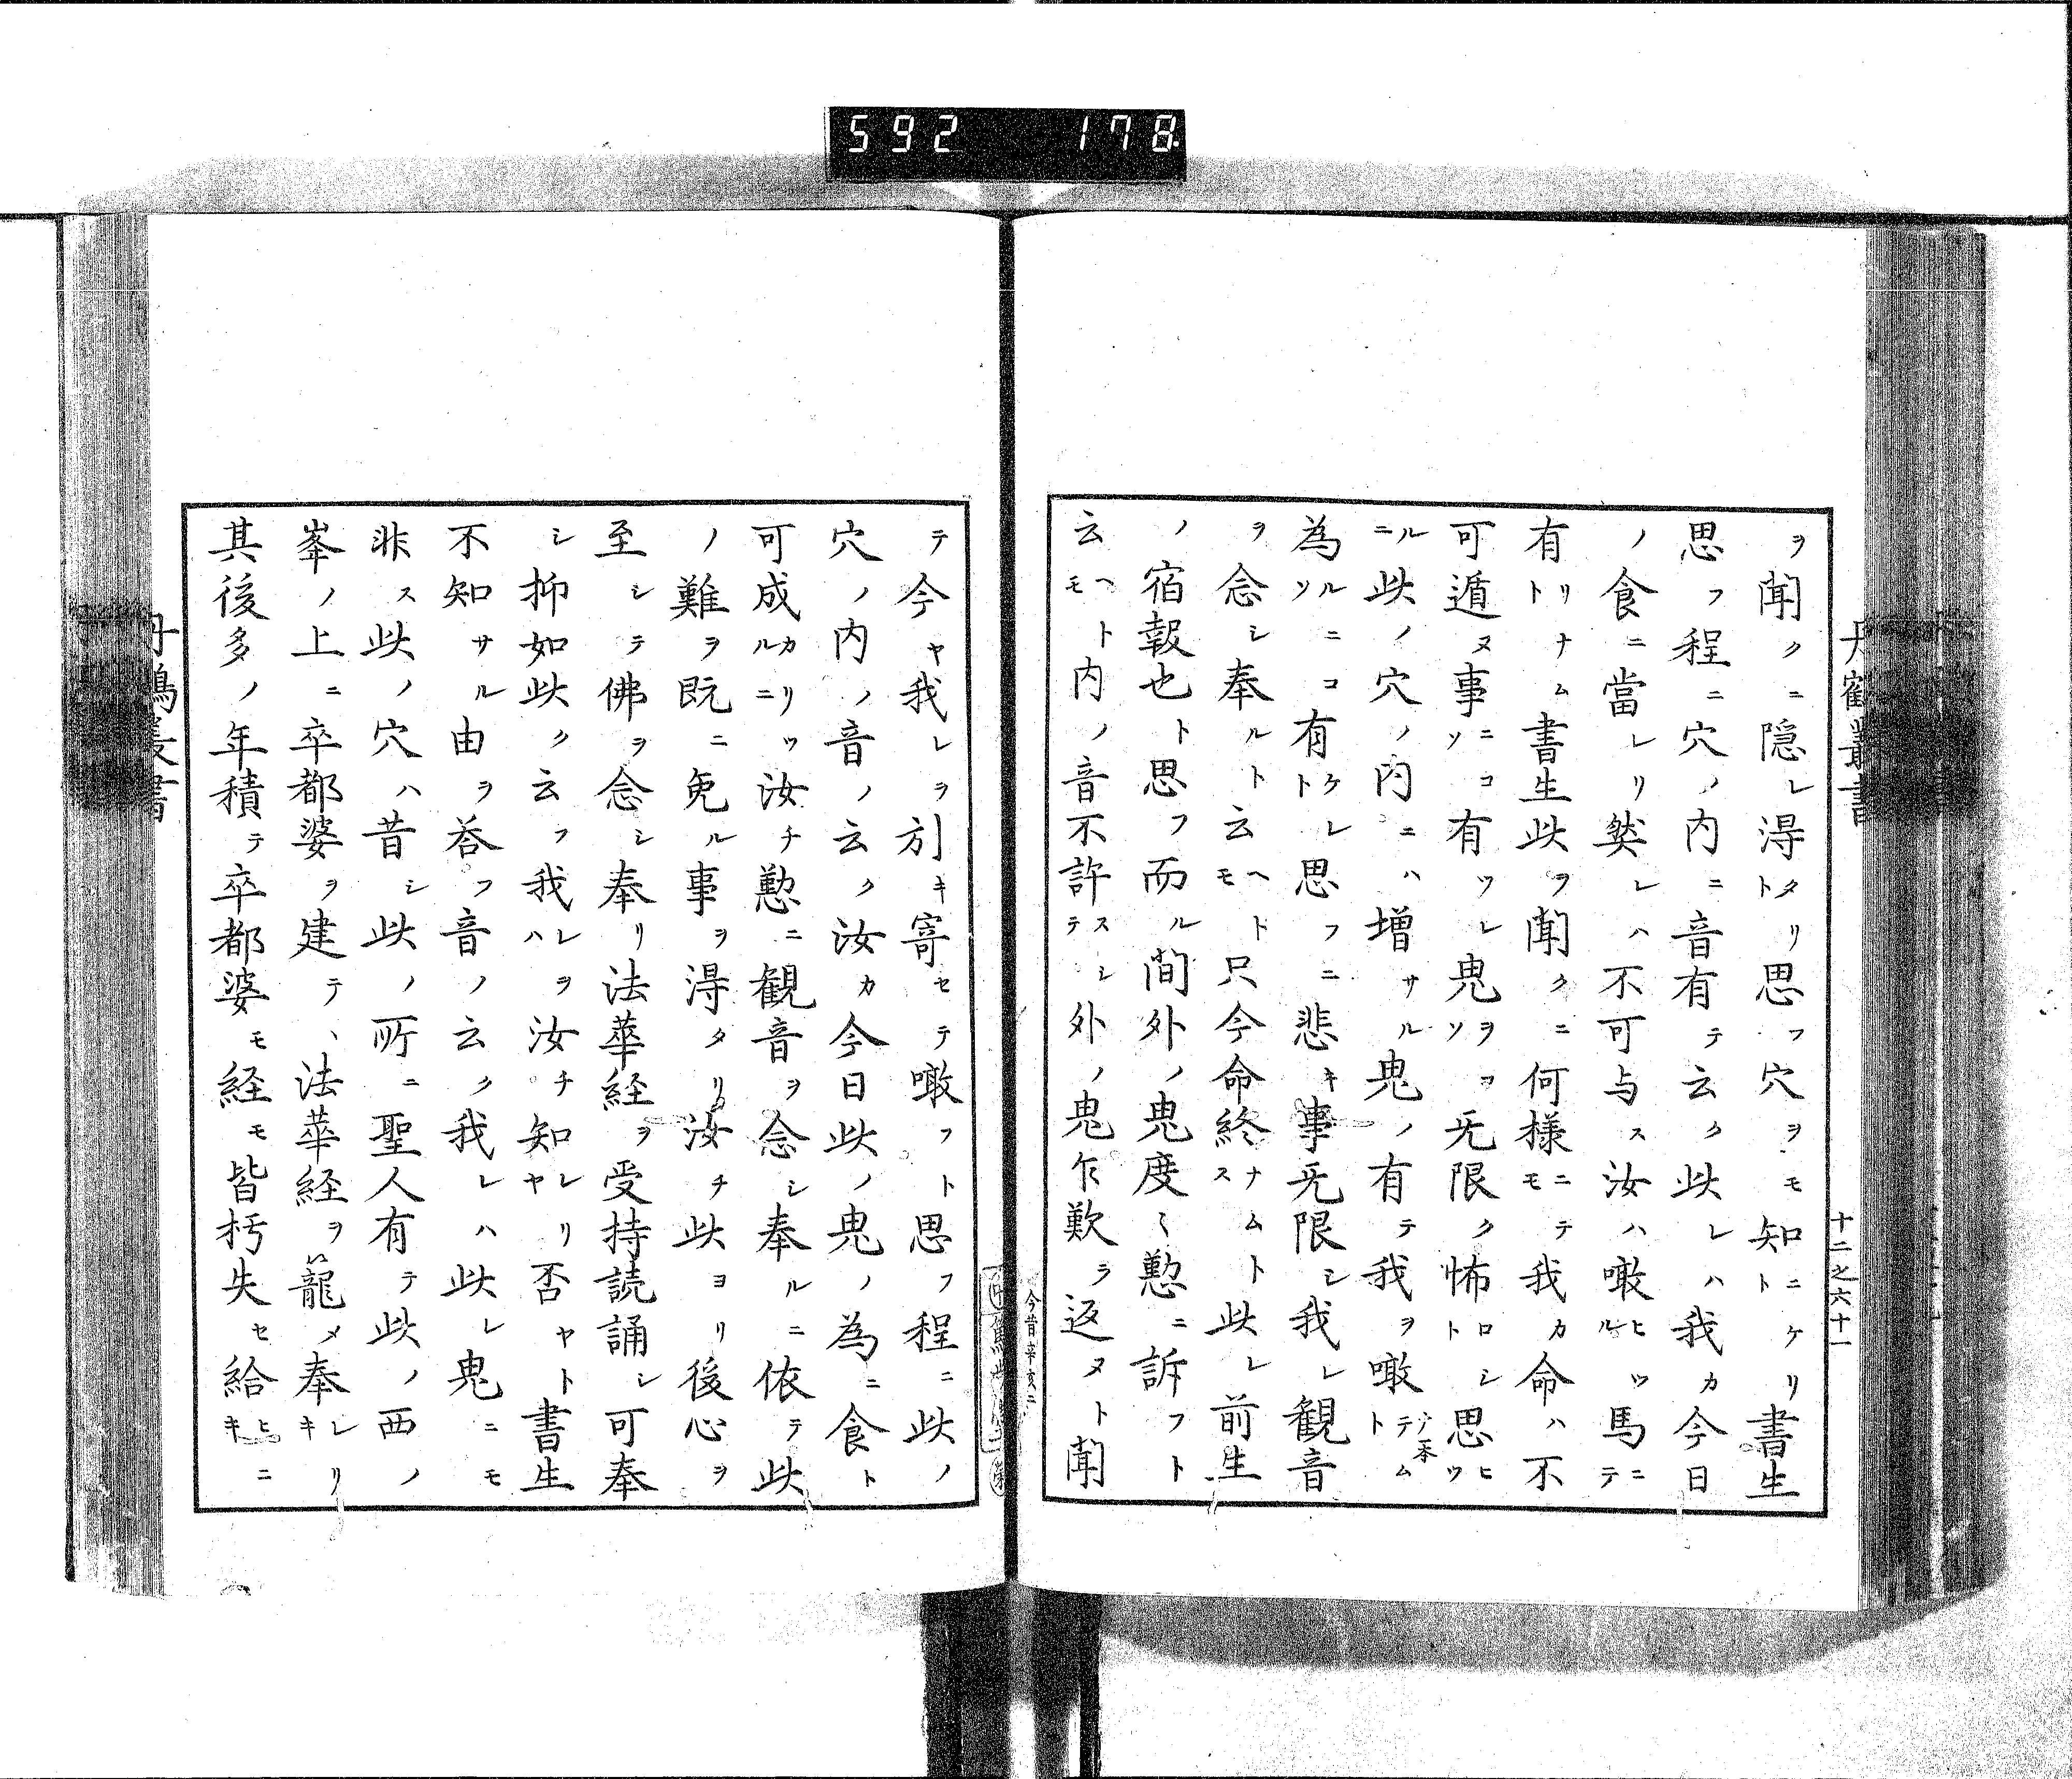 592 178
丹鶴叢書
十二之六十一
ヲ聞クニ隠レ得タリト思フ穴ヲモ知ニケリト書生
思フ程ニ穴ノ内ニ音有テ云ク此レハ我カ今日
ノ食ニ當レリ然レハ不可与ス汝ハ噉ヒツル馬ニテ
有リナムト書生此ヲ聞クニ何様ニテモ我カ命ハ不
可遁ヌ事ニコソ有ツレ鬼ヲコソ无限ク怖ロシト思ヒツ
ルニ此ノ穴ノ内ニハ増サル鬼ノ有テ我ヲ噉テムト
為ルニコソ有ケレト思フニ悲キ事无限シ我レ観音
ヲ念シ奉ルト云ヘトモ只今命終ナムトス此レ前生
ノ宿報也ト思フ而ル間外ノ鬼度〻懃ニ訴フト
云ヘトモ内ノ音不許スシテ外ノ鬼乍歎ラ返ヌト聞
テ今ヤ我レヲ引キ寄セテ噉フト思フ程ニ此ノ
穴ノ内ノ音ノ云ク汝カ今日此ノ鬼ノ為ニ食ト
可成カリツルニ汝チ懃ニ観音ヲ念シ奉ルニ依テ此
ノ難ヲ既ニ免ル事ヲ得タリ汝チ此ヨリ後心ヲ
至シテ佛ヲ念シ奉リ法華経ヲ受持読誦シ可奉
シ抑如此ク云フ我レヲハ汝チ知レリヤ否ヤト書生
不知サル由ヲ答フ音ノ云ク我レハ此レ鬼ニモ
非ス此ノ穴ハ昔シ此ノ所ニ聖人有テ此ノ西ノ
峯ノ上ニ卒都婆ヲ建テヽ法華経ヲ籠メ奉レリキ
其後多ノ年積テ卒都婆モ経モ皆朽失セ給ヒニキ